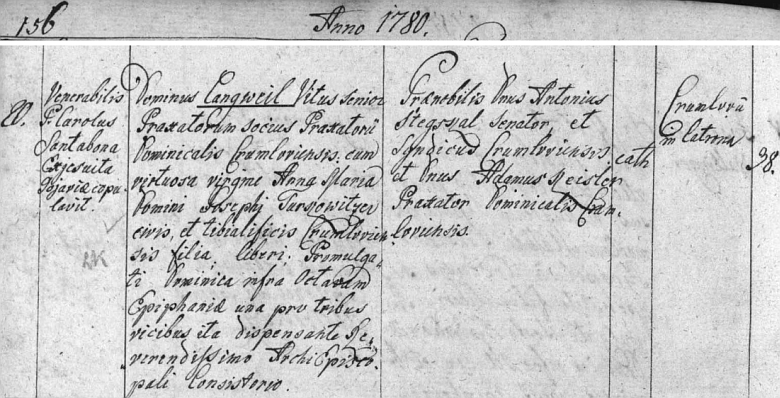 156 Anno 1780.
20.
Venerabilis
P. Carolus
Santabona
Exjesuita
copu-
lavit.
Dominus Langweil Vitus senior
Praxatorum socius Praxatorii
Dominicalis Crumloviensis, cum
virtuosa virgine Anna Maria
Domini Josephi Turkowitzer
civis, et tibialificis Crumlovien-
sis filia, liberi. Promulga-
ti Dominica infra Octavam
Epiphaniae una pro tribus
vicibus ita dispensante Re-
verendissimo Archi Episco-
pali Consistorio.
Praenobilis Dnus Antonius
senator et
Syndicus Crumloviensis
et Dnus Adamus Meisler
Praxator Dominicalis Crum-
loviensis.
cath
Crumlovii
in latrona
38.